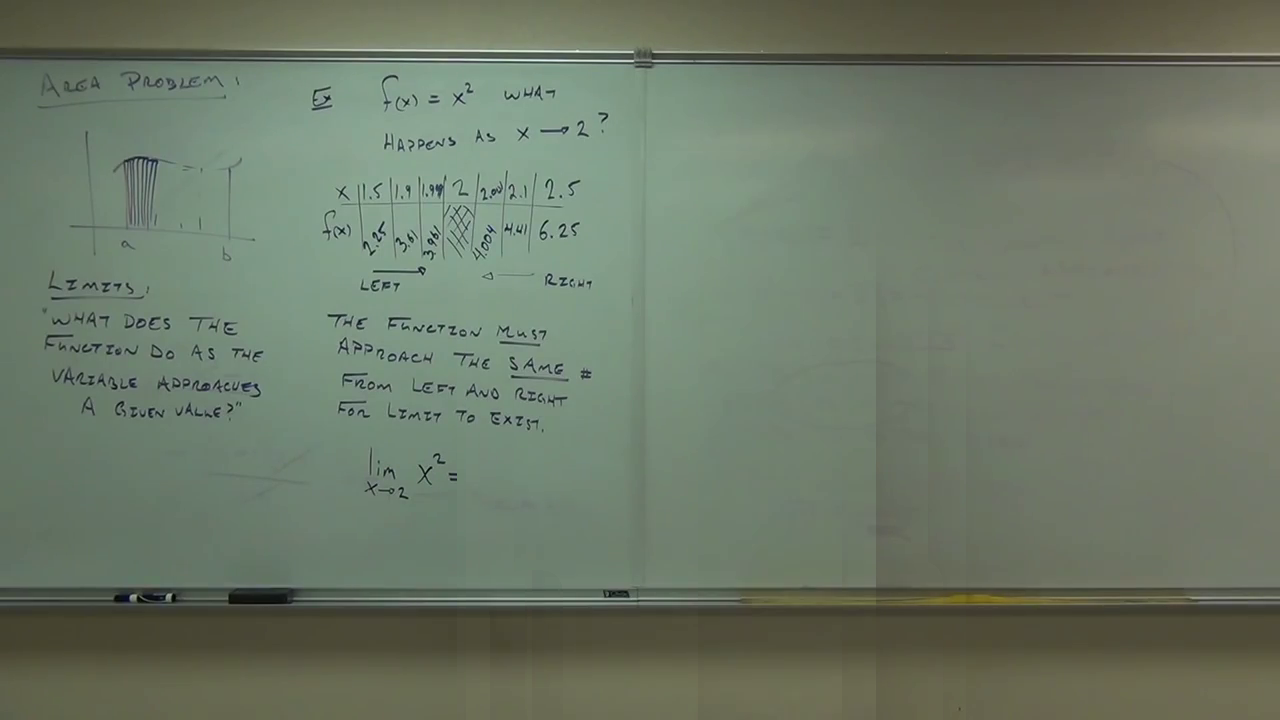 AREA PROBLEM:
a
b
LIMITS:
"WHAT DOES THE
FUNCTION DO AS THE
VARIABLE APPROACHES
A GIVEN VALUE?"
Ex f(x) = x² WHAT
HAPPENS AS x → 2?
x 1.5 1.9 2 2.1 2.5
f(x) 2.25 3.61 4.004 4.41 6.25
LEFT → ← RIGHT
THE FUNCTION MUST
APPROACH THE SAME #
FROM LEFT AND RIGHT
FOR LIMIT TO EXIST.
lim x² =
x→2